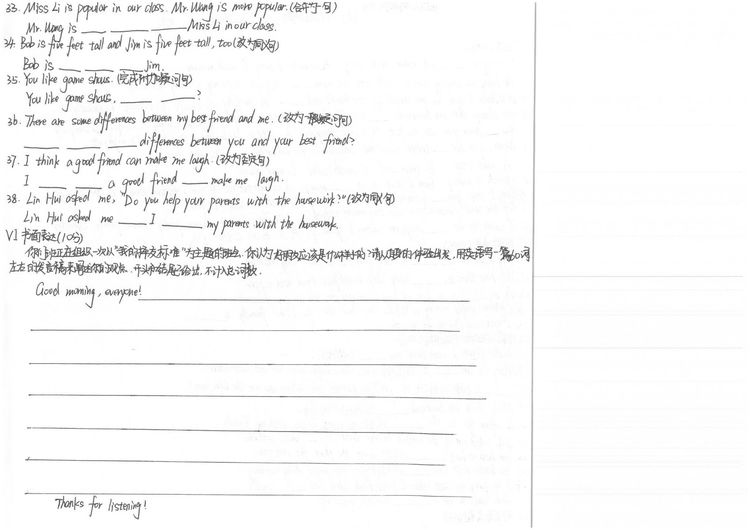 33. Miss Li is popular in our class. Mr. Wang is more popular. (合并为一句)
Mr. Wang is ___ ___ ___ Miss Li in our class.
34. Bob is five feet tall and Jim is five feet tall, too (改为同义句)
Bob is ___ ___ ___ Jim.
35. You like game shows. (完成附加疑问句)
You like game shows, ___ ___?
36. There are some differences between my best friend and me. (改为一般疑问句)
___ ___ ___ differences between you and your best friend?
37. I think a good friend can make me laugh. (改为否定句)
I ___ ___ a good friend ___ make me laugh.
38. Lin Hui asked me, "Do you help your parents with the housework?" (改为同义句)
Lin Hui asked me ___ I ___ my parents with the housework.
VI 书面表达(10分)
你们班正在组织一次以"我的择友标准"为主题的班会,你认为好朋友应该是什么样的?请以自己的体验出发,用英语写一篇60词
左右的发言稿来阐述你的观点。开头和结尾已给出,不计入总词数.
Good morning, everyone!
Thanks for listening!